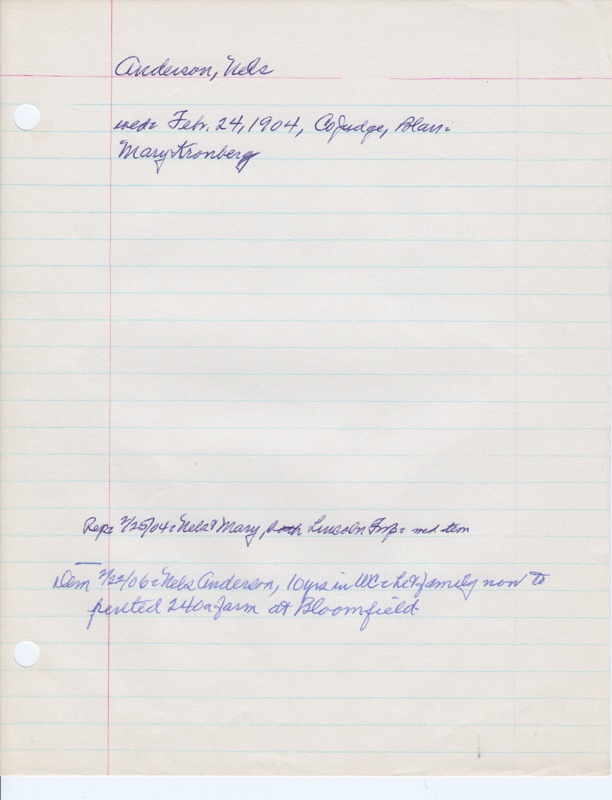 Anderson, Nels
wed= Feb. 24, 1904, CoJudge, Blair=
Mary Kronberg
Rep= 2/25/04= Nels & Mary, both Lincoln Twp= med item
Dem 2/22/06= Nels Anderson, 10yrs in WC= he & family now to
rented 240a farm at Bloomfield